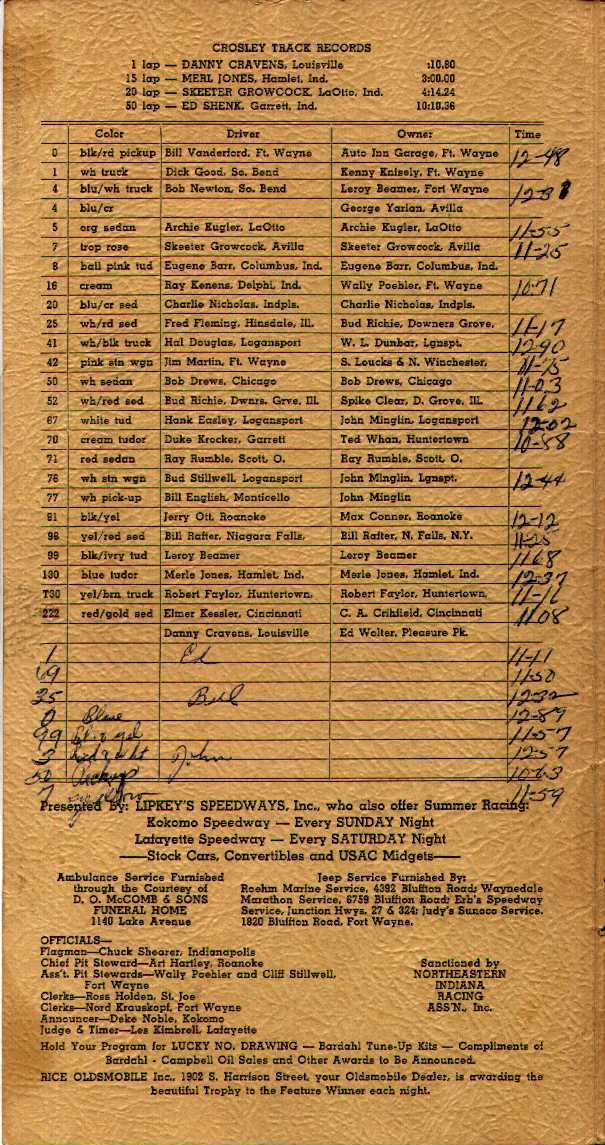 CROSLEY TRACK RECORDS
1 lap — DANNY CRAVENS, Louisville :10.80
15 lap — MERL JONES, Hamlet, Ind. 3:00.00
20 lap — SKEETER GROWCOCK, LaOtto, Ind. 4:14.24
50 lap — ED SHENK, Garrett, Ind. 10:18.36
Color Driver Owner Time
0 blk/rd pickup Bill Vanderford, Ft. Wayne Auto Inn Garage, Ft. Wayne 12-48
1 wh truck Dick Good, So. Bend Kenny Knisely, Ft. Wayne
4 blu/wh truck Bob Newton, So. Bend Leroy Beamer, Fort Wayne
4 blu/cr George Yarlan, Avilla
5 org sedan Archie Kugler, LaOtto Archie Kugler, LaOtto 11-55
7 trop rose Skeeter Growcock, Avilla Skeeter Growcock, Avilla 11-25
8 ball pink tud Eugene Barr, Columbus, Ind. Eugene Barr, Columbus, Ind.
16 cream Ray Kenens, Delphi, Ind. Wally Poehler, Ft. Wayne 10-71
20 blu/cr sed Charlie Nicholas, Indpls. Charlie Nicholas, Indpls.
25 wh/rd sed Fred Fleming, Hinsdale, Ill. Bud Richie, Downers Grove, 11-17
41 wh/blk truck Hal Douglas, Logansport W. L. Dunbar, Lgnspt. 12-90
42 pink stn wgn Jim Martin, Ft. Wayne S. Loucks & N. Winchester, 11-75
50 wh sedan Bob Drews, Chicago Bob Drews, Chicago 11-03
52 wh/red sed Bud Richie, Dwnrs. Grve, Ill. Spike Clear, D. Grove, Ill. 1162
67 white tud Hank Easley, Logansport John Minglin, Logansport 12-02
70 cream tudor Duke Krocker, Garrett Ted Whan, Huntertown 10-88
71 red sedan Ray Rumble, Scott, O. Ray Rumble, Scott, O.
76 wh stn wgn Bud Stillwell, Logansport John Minglin, Lgnspt. 12-44
77 wh pick-up Bill English, Monticello John Minglin
81 blk/yel Jerry Ott, Roanoke Max Conner, Roanoke 12-12
98 yel/red sed Bill Rafter, Niagara Falls, Bill Rafter, N. Falls, N.Y. 11-25
99 blk/ivry tud Leroy Beamer Leroy Beamer 1168
130 blue tudor Merle Jones, Hamlet, Ind. Merle Jones, Hamlet, Ind. 12-37
T30 yel/brn truck Robert Faylor, Huntertown, Robert Faylor, Huntertown, 11-16
222 red/gold sed Elmer Kessler, Cincinnati C. A. Crihfield, Cincinnati 1108
Danny Cravens, Louisville Ed Wolter, Pleasure Pk.
1 Ed 11-11
69 11-50
35 Bill 12-32
0 Blue 12-89
99 11-57
3 John 12-57
50 Pickup 10-63
7 11-59
Presented By: LIPKEY'S SPEEDWAYS, Inc., who also offer Summer Racing:
Kokomo Speedway — Every SUNDAY Night
Lafayette Speedway — Every SATURDAY Night
——Stock Cars, Convertibles and USAC Midgets——
Ambulance Service Furnished
through the Courtesy of
D. O. McCOMB & SONS
FUNERAL HOME
1140 Lake Avenue
Jeep Service Furnished By:
Roehm Marine Service, 4392 Bluffton Road; Waynedale
Marathon Service, 6759 Bluffton Road; Erb's Speedway
Service, Junction Hwys. 27 & 324; Judy's Sunoco Service,
1820 Bluffton Road, Fort Wayne.
OFFICIALS—
Flagman—Chuck Shearer, Indianapolis
Chief Pit Steward—Art Hartley, Roanoke
Ass't. Pit Stewards—Wally Poehler and Cliff Stillwell,
Fort Wayne
Clerks—Ross Holden, St. Joe
Clerks—Nord Krauskopf, Fort Wayne
Announcer—Deke Noble, Kokomo
Judge & Timer—Les Kimbrell, Lafayette
Sanctioned by
NORTHEASTERN
INDIANA
RACING
ASS'N., Inc.
Hold Your Program for LUCKY NO. DRAWING — Bardahl Tune-Up Kits — Compliments of
Bardahl - Campbell Oil Sales and Other Awards to Be Announced.
RICE OLDSMOBILE Inc., 1902 S. Harrison Street, your Oldsmobile Dealer, is awarding the
beautiful Trophy to the Feature Winner each night.